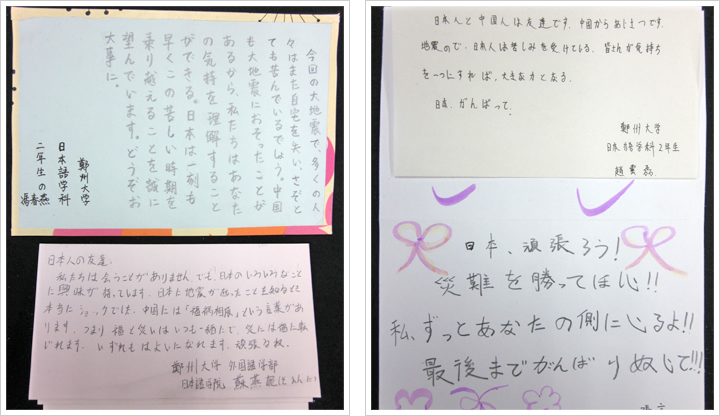 今回の大地震で、多くの人
々はまた自宅を失い、さぞと
ても苦んでいるでしょう。中国
も大地震におそったことが
あるから、私たちはあなた
の気持を理解すること
ができる。日本は一刻も
早くこの苦しい時期を
乗り越えることを誠に
望んでいます。どうぞお
大事に。
鄭州大学
日本語学科
二年生の
馮春燕
日本人の友達:
私たちは会うことがありません。でも、日本のいろいろなこと
に興味が持ってします。日本に地震があったことを知ると
本当にショックでした。中国には「禍福相依」という言葉があ
ります。つまり 福と災いはいつも一緒で、災いは福に転
じれます。いずれもはよいになれます。頑張るね。
鄭州大学 外国語学部
日本語学院 蘇燕
日本人と中国人は友達です。中国からあいさつです。
地震ので、日本人は苦しみを受けている。皆さんが気持ち
を一つにすれば、大きな力となる。
日本、がんばって。
鄭州大学
日本語学科2年生
趙雲磊
日本、頑張ろう!
災難を勝ってほし!!
私、ずっとあなたの側にいるよ!!
最後までがんばりぬいて!!!